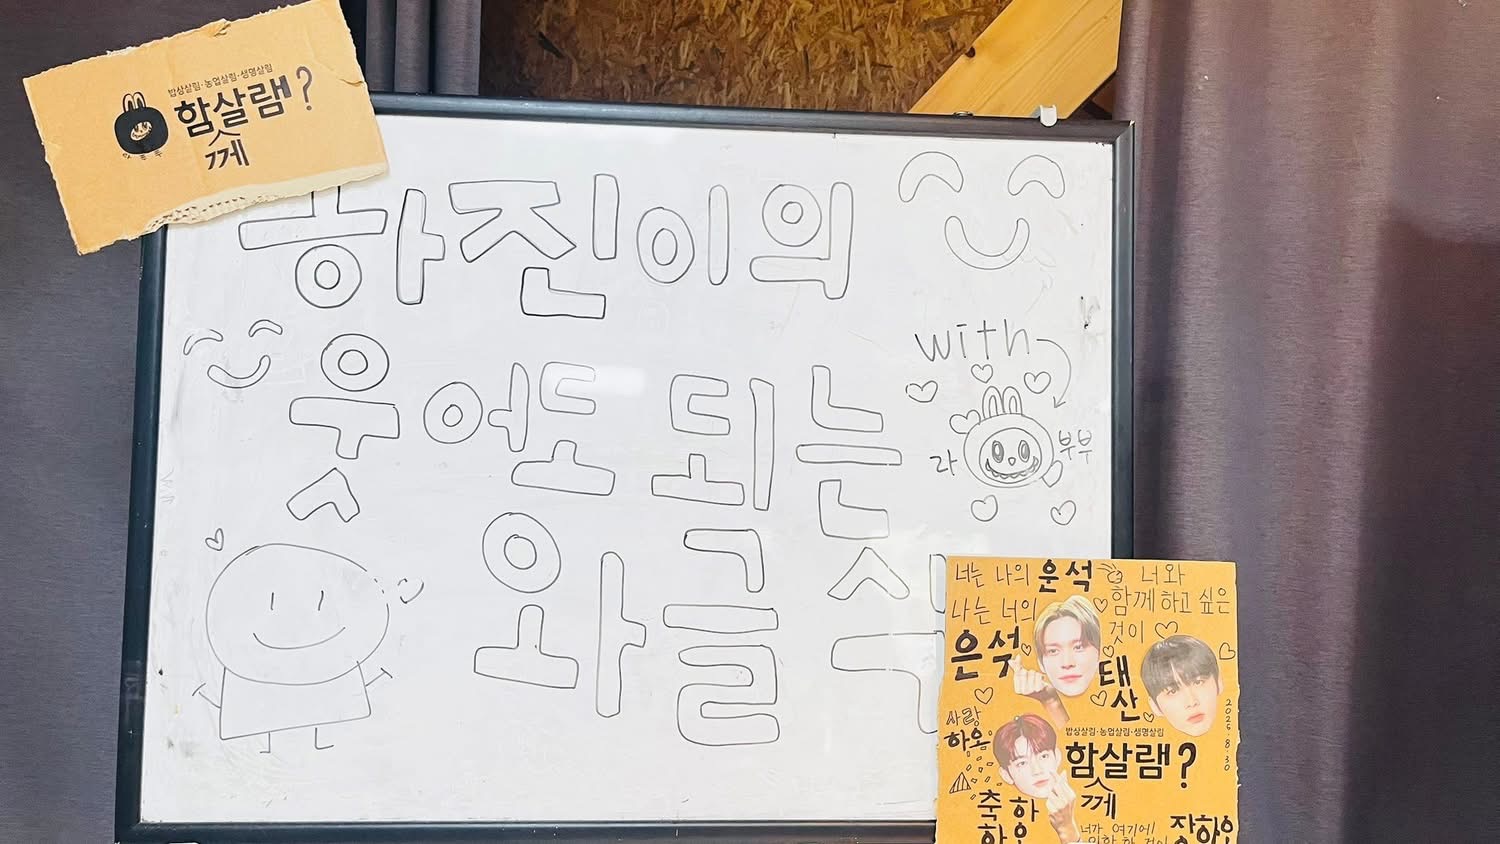 밥상살림·농업살림·생명살림
함살램?
께
하진이의
웃어도 되는
와글
with
라
부부
너는 나의 윤석
너와
나는 너의
함께 하고 싶은
은석
것이
태
산
사랑
하옴
2025.8.30
밥상살림·농업살림·생명살림
함살램?
께
축하
너가 여기에!